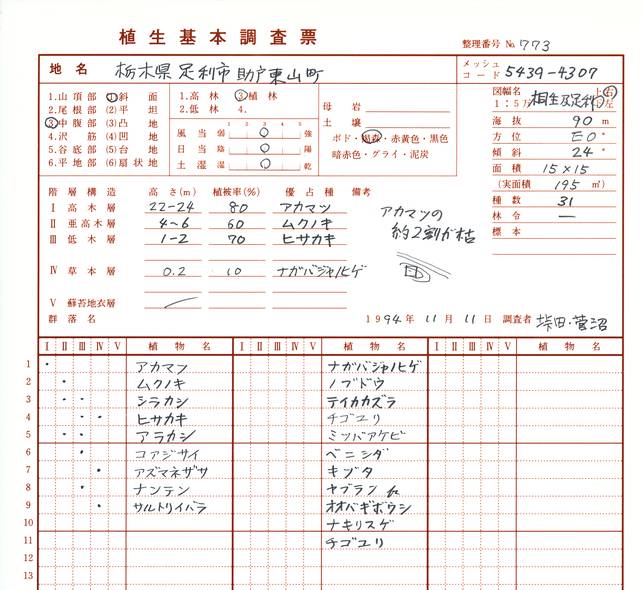 植生基本調査票
整理番号 No. 773
地名 栃木県 足利市 助戸東山町
メッシュコード 5439-4307
1.山頂部 (1)斜面
2.尾根部 (2)平坦
3.中腹部 (3)凸地
4.沢筋 (4)凹地
5.谷底部 (5)台地
6.平地部 (6)扇状地
1.高林 3.植林
2.低林 4.
1 2 3 4 5
風当 弱 強
日当 陰 陽
土湿 湿 乾
母岩
土壌
ポド・褐森・赤黄色・黒色
暗赤色・グライ・泥炭
図幅名 上右
1:5万 相生及足利 下左
海抜 90 m
方位 E0°
傾斜 24°
面積 15×15
(実面積 195 ㎡)
種数 31
林令 —
標本
階層構造 高さ(m) 植被率(%) 優占種 備考
I 高木層 22-24 80 アカマツ
II 亜高木層 4~6 60 ムクノキ
III 低木層 1-2 70 ヒサカキ
IV 草本層 0.2 10 ナガバジャノヒゲ
V 蘚苔地衣層
アカマツの
約2割が枯
群落名
1994年 11月 11日 調査者 菅沼
I II III IV V 植物名 I II III IV V 植物名 I II III IV V 植物名
1 アカマツ ナガバジャノヒゲ
2 ムクノキ ノブドウ
3 シラカシ テイカカズラ
4 ヒサカキ チゴユリ
5 アラカシ ミツバアケビ
6 コアジサイ ベニシダ
7 アズマネザサ キヅタ
8 ナンテン ヤブラン
9 サルトリイバラ オオバギボウシ
10 ナキリスゲ
11 チゴユリ
12
13